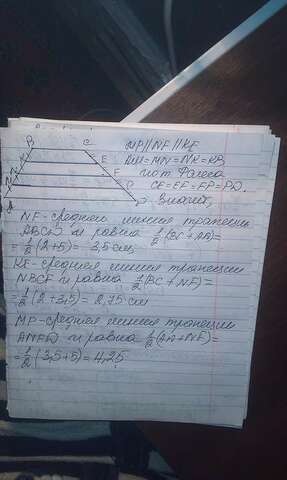 B C
MP || NF || KE
K E
AM = MN = NK = KB
N F
по т. Фалеса
M P
CE = EF = FP = PD.
A D
Значит,
NF - средняя линия трапеции
ABCD и равна 1/2(BC + AD) =
= 1/2(2+5) = 3,5 см,
KE - средняя линия трапеции
NBCF и равна 1/2(BC + NF) =
= 1/2(2 + 3,5) = 2,75 см
MP - средняя линия трапеции
ANFD и равна 1/2(AD + NF) =
= 1/2(3,5+5) = 4,25